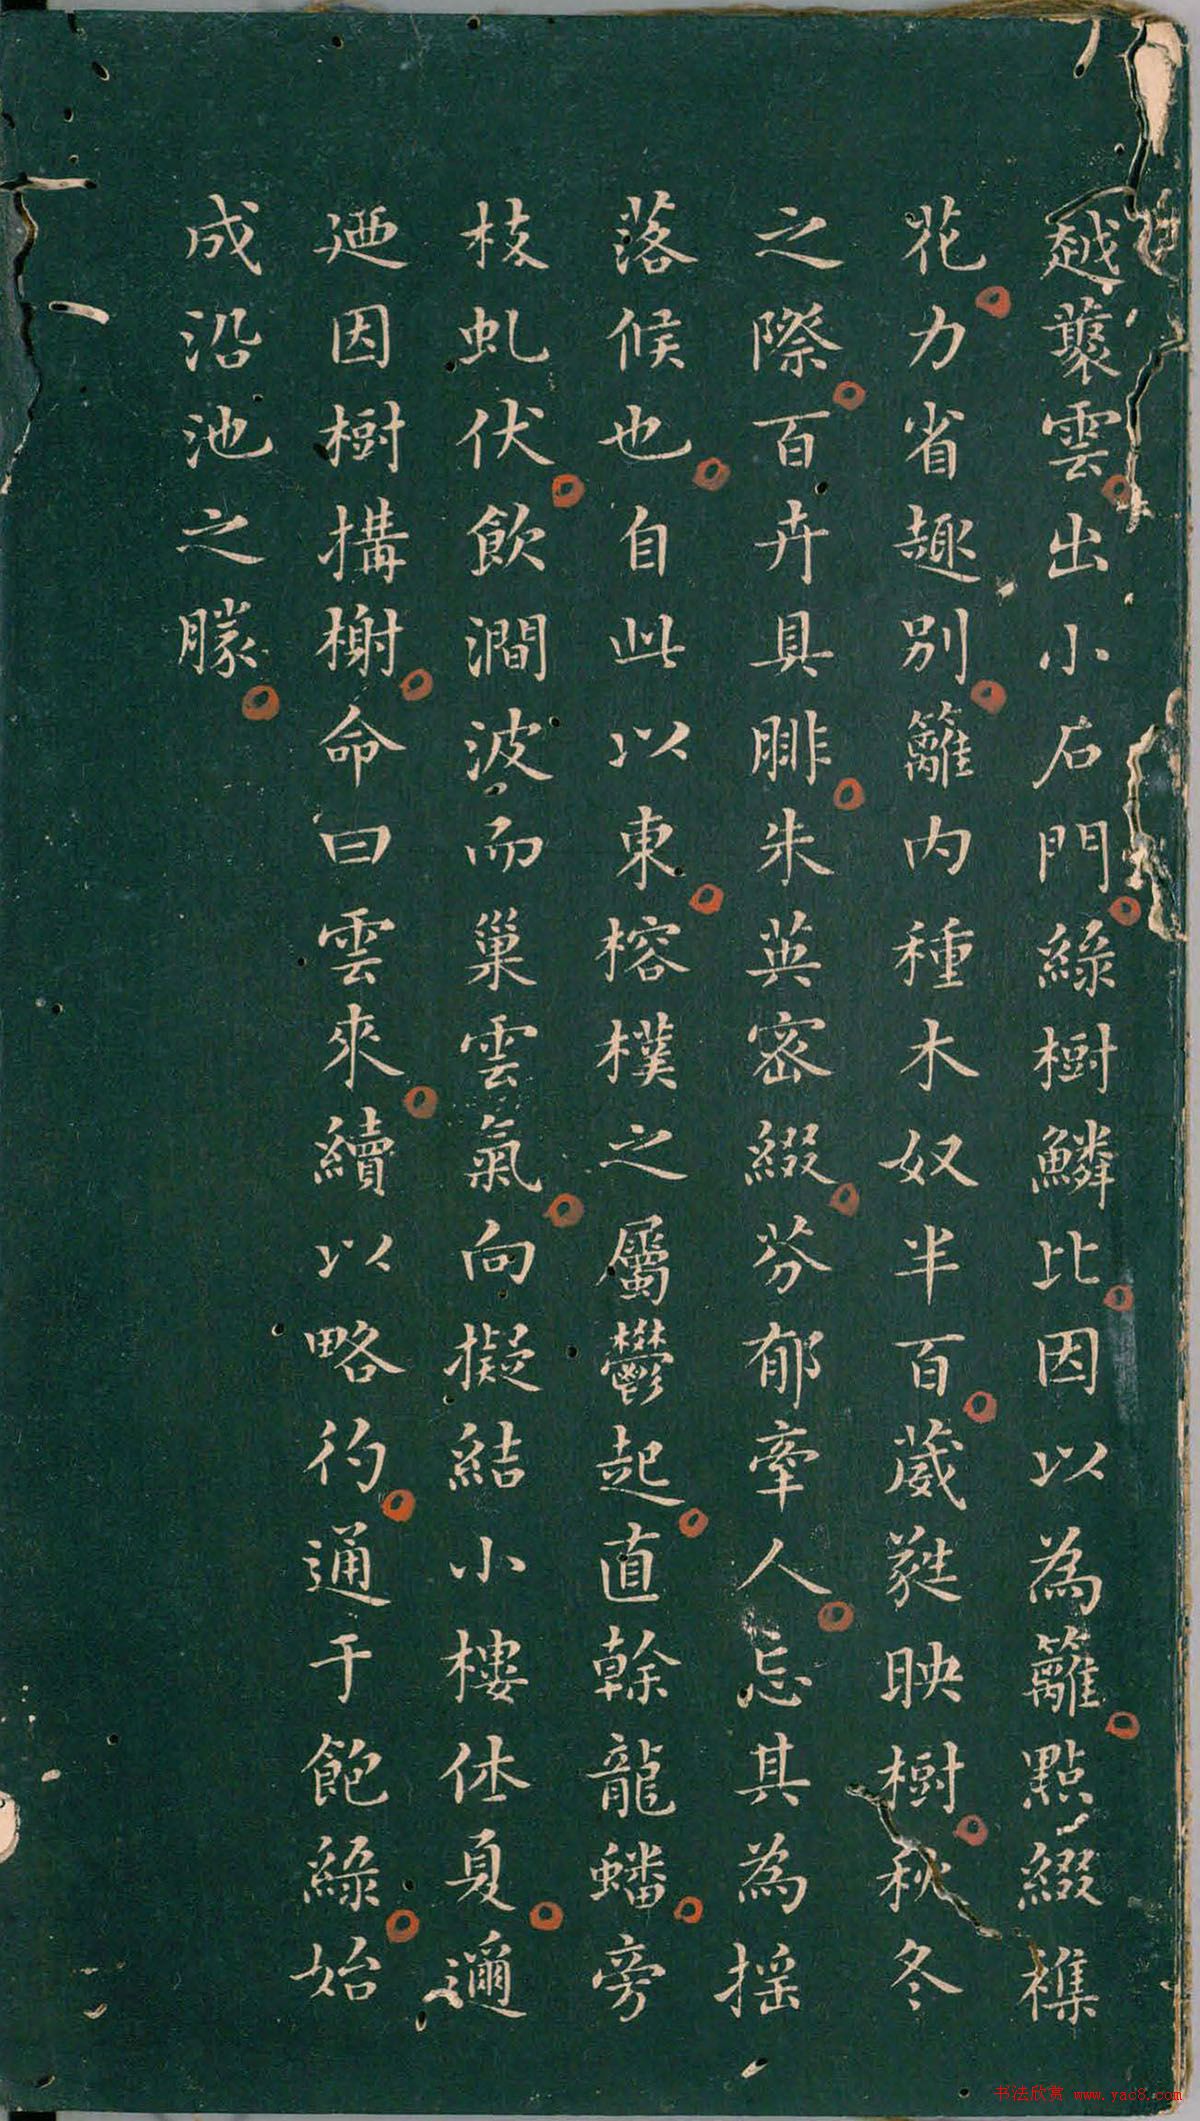 越蘘雲出小石門綠樹鱗比因以為籬點綴襍
花力省趣別籬內種木奴半百葳蕤映樹秋冬
之際百卉具腓朱英密綴芬郁牽人忘其為揺
落候也自此以東榕樸之屬鬱起直榦龍蟠旁
枝虬伏飲澗波而巢雲氣向擬結小樓休夏邇
廼因樹搆榭命曰雲來續以略彴通于飽綠始
成沿池之朦
书法欣赏 www.yac8.com